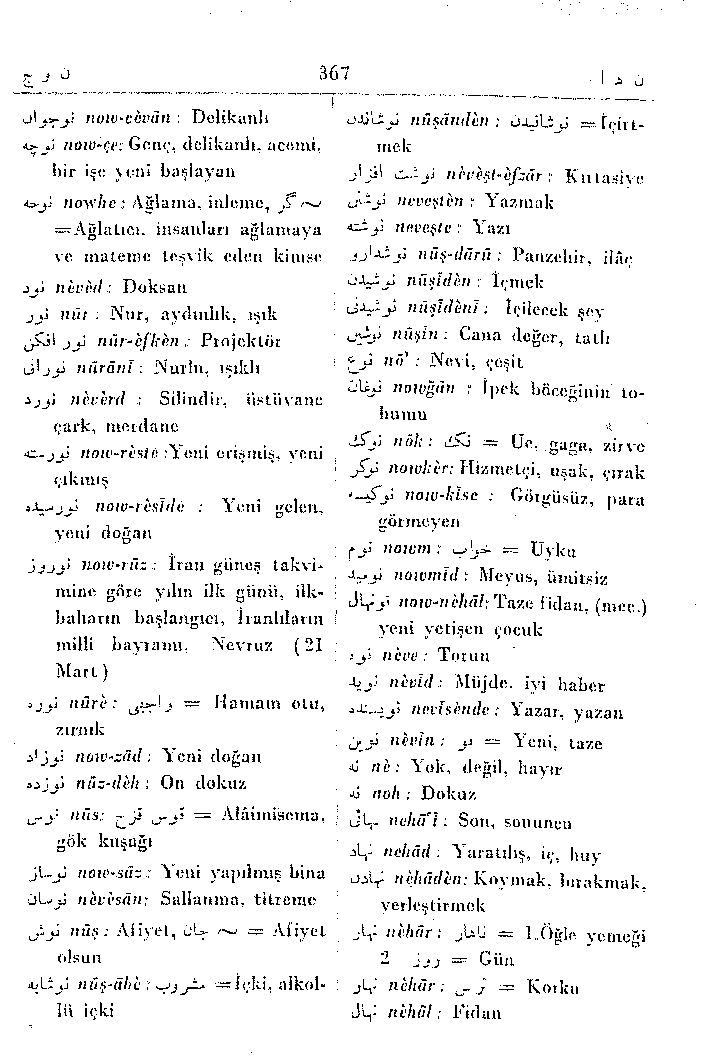 ن و ج 367 ن د ا
نوجوان now-cèvān : Delikanlı
نوچه now-çe: Genç, delikanlı, acemi,
bir işe yeni başlayan
نوحه nowhe : Ağlama, inleme, ~ گر
=Ağlatıcı, insanları ağlamaya
ve mateme teşvik eden kimse
نود nèvèd : Doksan
نور nūr : Nur, aydınlık, ışık
نور افکن nūr-èfkèn : Projektör
نورانی nūrānī : Nurlu, ışıklı
نورد nèvèrd : Silindir, üstüvane
çark, merdane
نورسته now-rèste :Yeni erişmiş, yeni
çıkmış
نورسیده now-rèsīde : Yeni gelen,
yeni doğan
نوروز now-rūz : İran güneş takvi-
mine göre yılın ilk günü, ilk-
baharın başlangıcı, İranlıların
milli bayramı, Nevruz (21
Mart)
نوره nūrè : واجبی = Hamam otu,
zırnık
نوزاد now-zād : Yeni doğan
نوزده nūz-dèh : On dokuz
نوس nūs: قوس قزح = Alâimisema,
gök kuşağı
نوساز now-sāz : Yeni yapılmış bina
نوسان nèvèsān: Sallanma, titreme
نوش nūş : Afiyet, ~ جان = Afiyet
olsun
نوشابه nūş-ābè : مشروب =İçki, alkol-
lü içki
نوشاندن nūşāndèn : نوشانیدن = İçirt-
mek
نوشت افزار nèvèşt-èfzār : Kırtasiye
نوشتن neveştèn : Yazmak
نوشته neveşte : Yazı
نوشدارو nūş-dārū : Panzehir, ilâç
نوشیدن nūşīdèn : İçmek
نوشیدنی nūşīdènī : İçilecek şey
نوشین nūşīn : Cana değer, tatlı
نوع nō' : Nevi, çeşit
نوغان nowğān : İpek böceğinin to-
humu
نوک nōk : تک = Uc, gaga, zirve
نوکر nowkèr: Hizmetçi, uşak, çırak
نوکیسه now-kīse : Görgüsüz, para
görmeyen
نوم nowm : خواب = Uyku
نومید nowmīd : Meyus, ümitsiz
نونهال now-nèhāl: Taze fidan, (mec.)
yeni yetişen çocuk
نوه nève : Torun
نوید nèvīd : Müjde, iyi haber
نویسنده nevīsènde : Yazar, yazan
نوین nèvīn : نو = Yeni, taze
نه nè : Yok, değil, hayır
نه noh : Dokuz
نهائی nehā'ī : Son, sonuncu
نهاد nehād : Yaratılış, iç, huy
نهادن nèhādèn: Koymak, bırakmak,
yerleştirmek
نهار nèhār : ناهار = 1.Öğle yemeği
2 روز = Gün
نهار nèhār : ترس = Korku
نهال nèhāl : Fidan